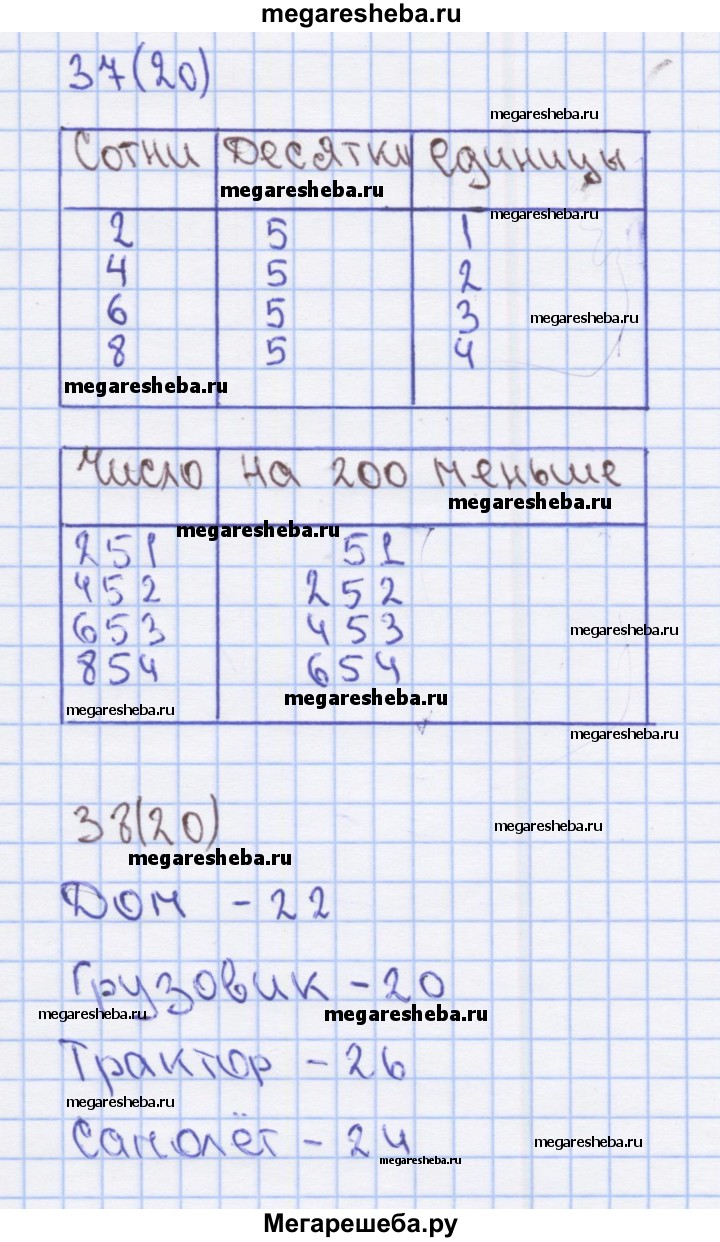 megaresheba.ru
37(20)
megaresheba.ru
Сотни Десятки единицы
megaresheba.ru
megaresheba.ru
2 5 1
4 5 2
6 5 3
megaresheba.ru
8 5 4
megaresheba.ru
Число на 200 меньше
megaresheba.ru
megaresheba.ru
251 51
452 252
653 453
megaresheba.ru
854 654
megaresheba.ru
megaresheba.ru
megaresheba.ru
38(20)
megaresheba.ru
megaresheba.ru
Дом - 22
Грузовик - 20
megaresheba.ru
megaresheba.ru
Трактор - 26
megaresheba.ru
Самолёт - 24
megaresheba.ru
megaresheba.ru
Мегарешеба.ру